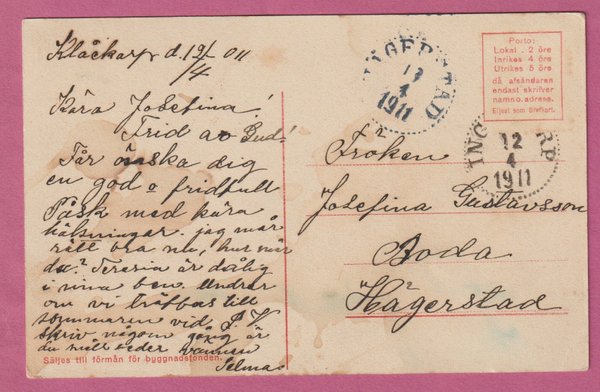 Klackarp d. 12/4 011
Kära Josefina!
Frid av Gud!
Får önska dig
en god o fridfull
Påsk med kära
hälsningar. jag mår
rätt bra nu, hur mår
du? Teresia är dålig
i sina ben. Undrar
om vi träffas till
sommaren vid
skriv någon gång är
du snäll eder vännen
Selma
Säljes till förmån för byggnadsfonden.
HÄGERSTAD
12
4
1911
Porto:
Lokal . 2 öre
Inrikes 4 öre
Utrikes 5 öre
då afsändaren
endast skrifver
namn o. adress.
Eljest som brefkort.
ING RP
12
4
1911
Fröken
Josefina Gustavsson
Boda
Hägerstad